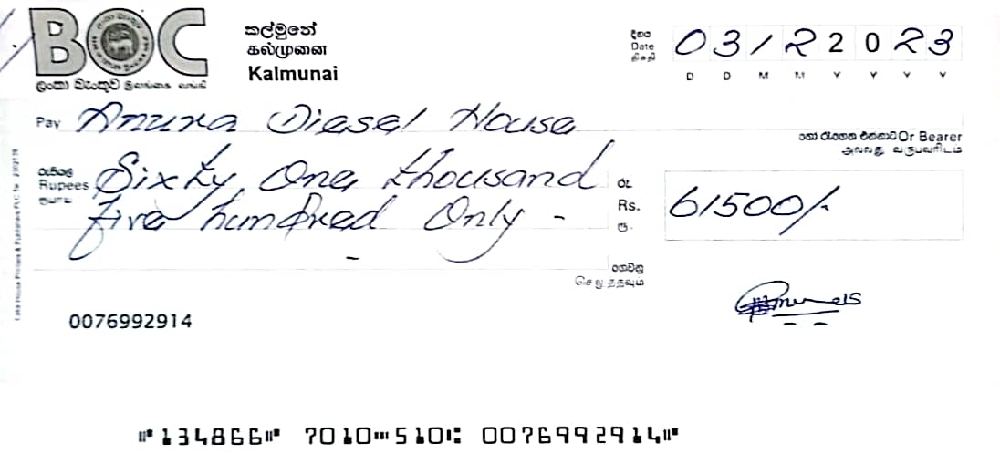 BOC
ලංකා බැංකුව இலங்கை வங்கி
කල්මුනේ
கல்முனை
Kalmunai
දිනය
Date
திகதி
03122023
D D M M Y Y Y Y
Pay Anura Diesel House
හෝ රැගෙන එන්නාට Or Bearer
அல்லது வருபவரிடம்
රුපියල්
Rupees Sixty One thousand
ரூபாய் five hundred Only -
රු.
Rs. 61500/-
ரூ.
ගෙවනු
செலுத்தவும்
0076992914
⑈134866⑈ 7010⑉510⑆ 0076992914⑈